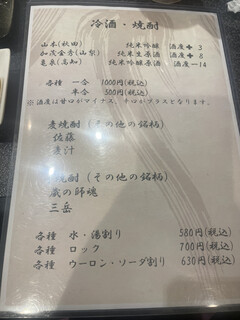 冷酒・焼酎
山本(秋田) 純米吟醸 酒度＋3
加茂金秀(山梨) 純米生原酒 酒度＋8
亀泉(高知) 純米吟醸原酒 酒度－14
各種 一合 1000円(税込)
半合 500円(税込)
※酒度は甘口がマイナス、辛口がプラスとなります。
麦焼酎(その他の銘柄)
佐藤
焼酎(その他の銘柄)
蔵の師魂
三岳
各種 水・湯割り 580円(税込)
各種 ロック 700円(税込)
各種 ウーロン・ソーダ割り 630円(税込)